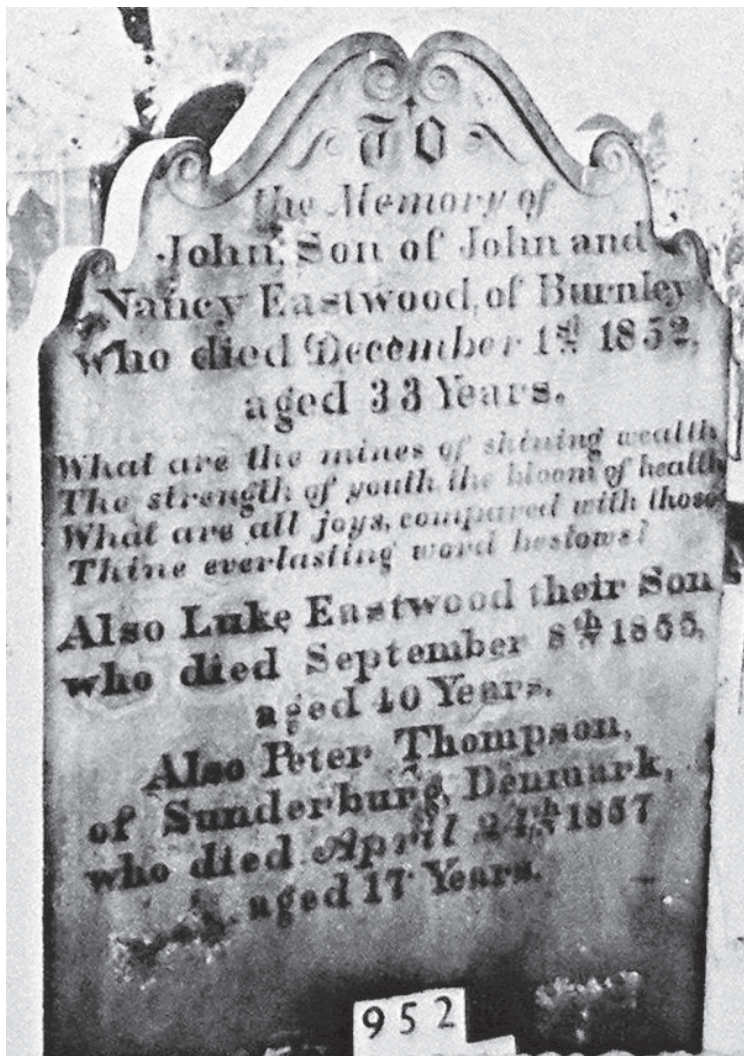 TO
the Memory of
John, Son of John and
Nancy Eastwood, of Burnley
who died December 1st 1852,
aged 33 Years.
What are the mines of shining wealth
The strength of youth, the bloom of health
What are all joys, compared with those
Thine everlasting word bestows?
Also Luke Eastwood their Son
who died September 8th 1855,
aged 40 Years.
Also Peter Thompson,
of Sunderburg, Denmark,
who died April 24th 1857
aged 17 Years.
952